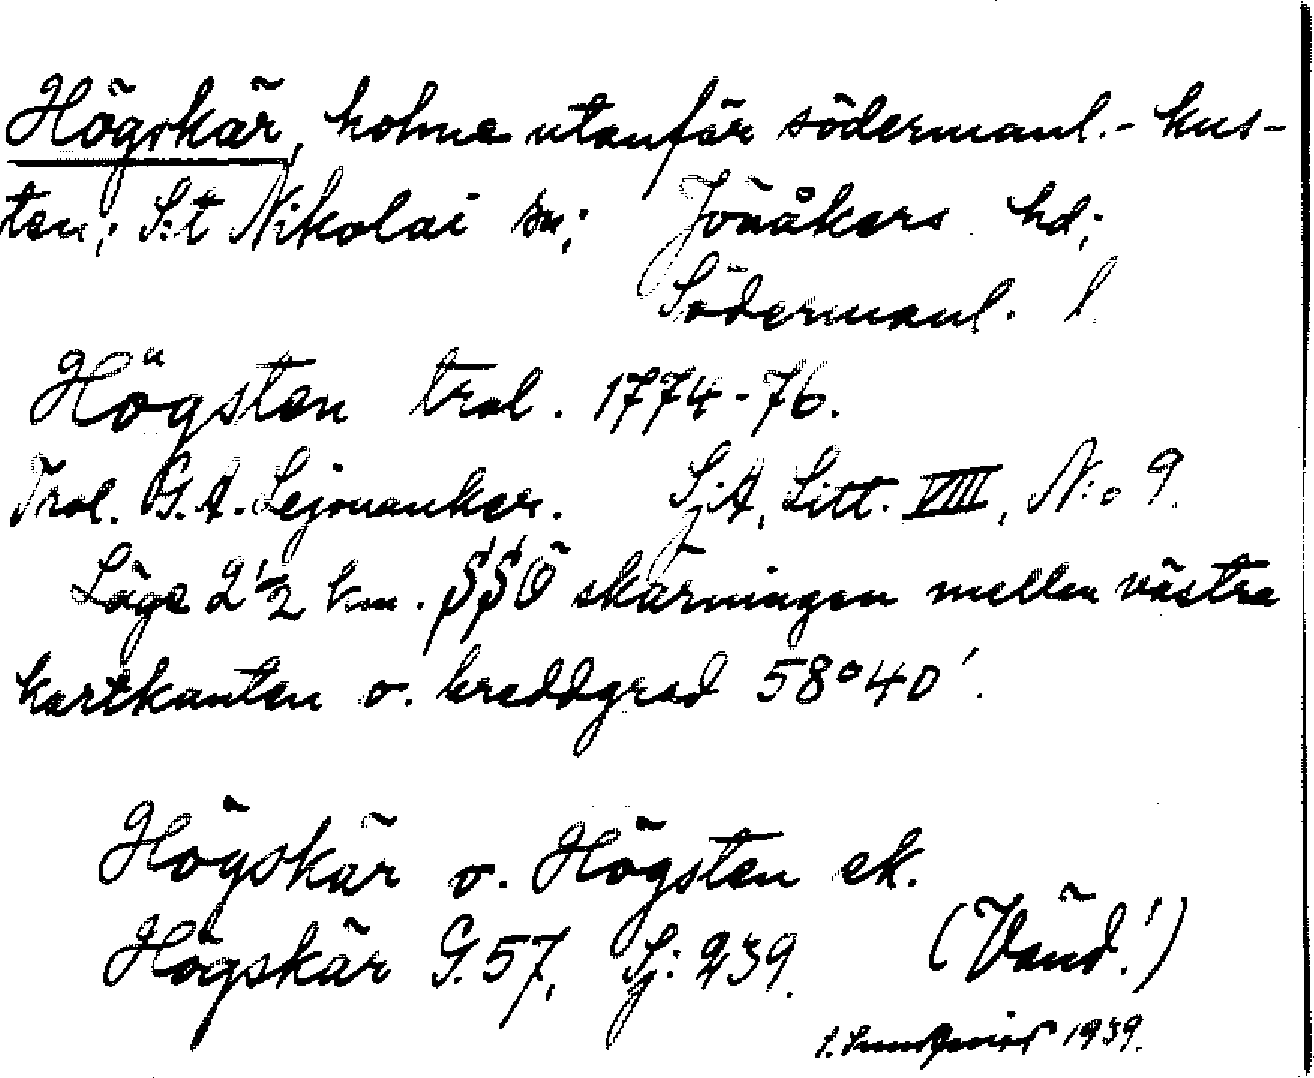 Högskär, holme utanför södermanl.- kus-
ten; S:t Nikolai sn; Jönåkers hd;
Södermanl. l
Högsten trol. 1774-76.
Trol. G. A. Lejonanker. Sj.A, Litt. VIII, N:o 9.
Läge 2 1/2 km. SSÖ skärningen mellan västra
kartkanten o. breddgrad 58°40'.
Högskär o. Högsten ek.
Högskär G. 57, Sj: 239. (Vänd!)
1939.